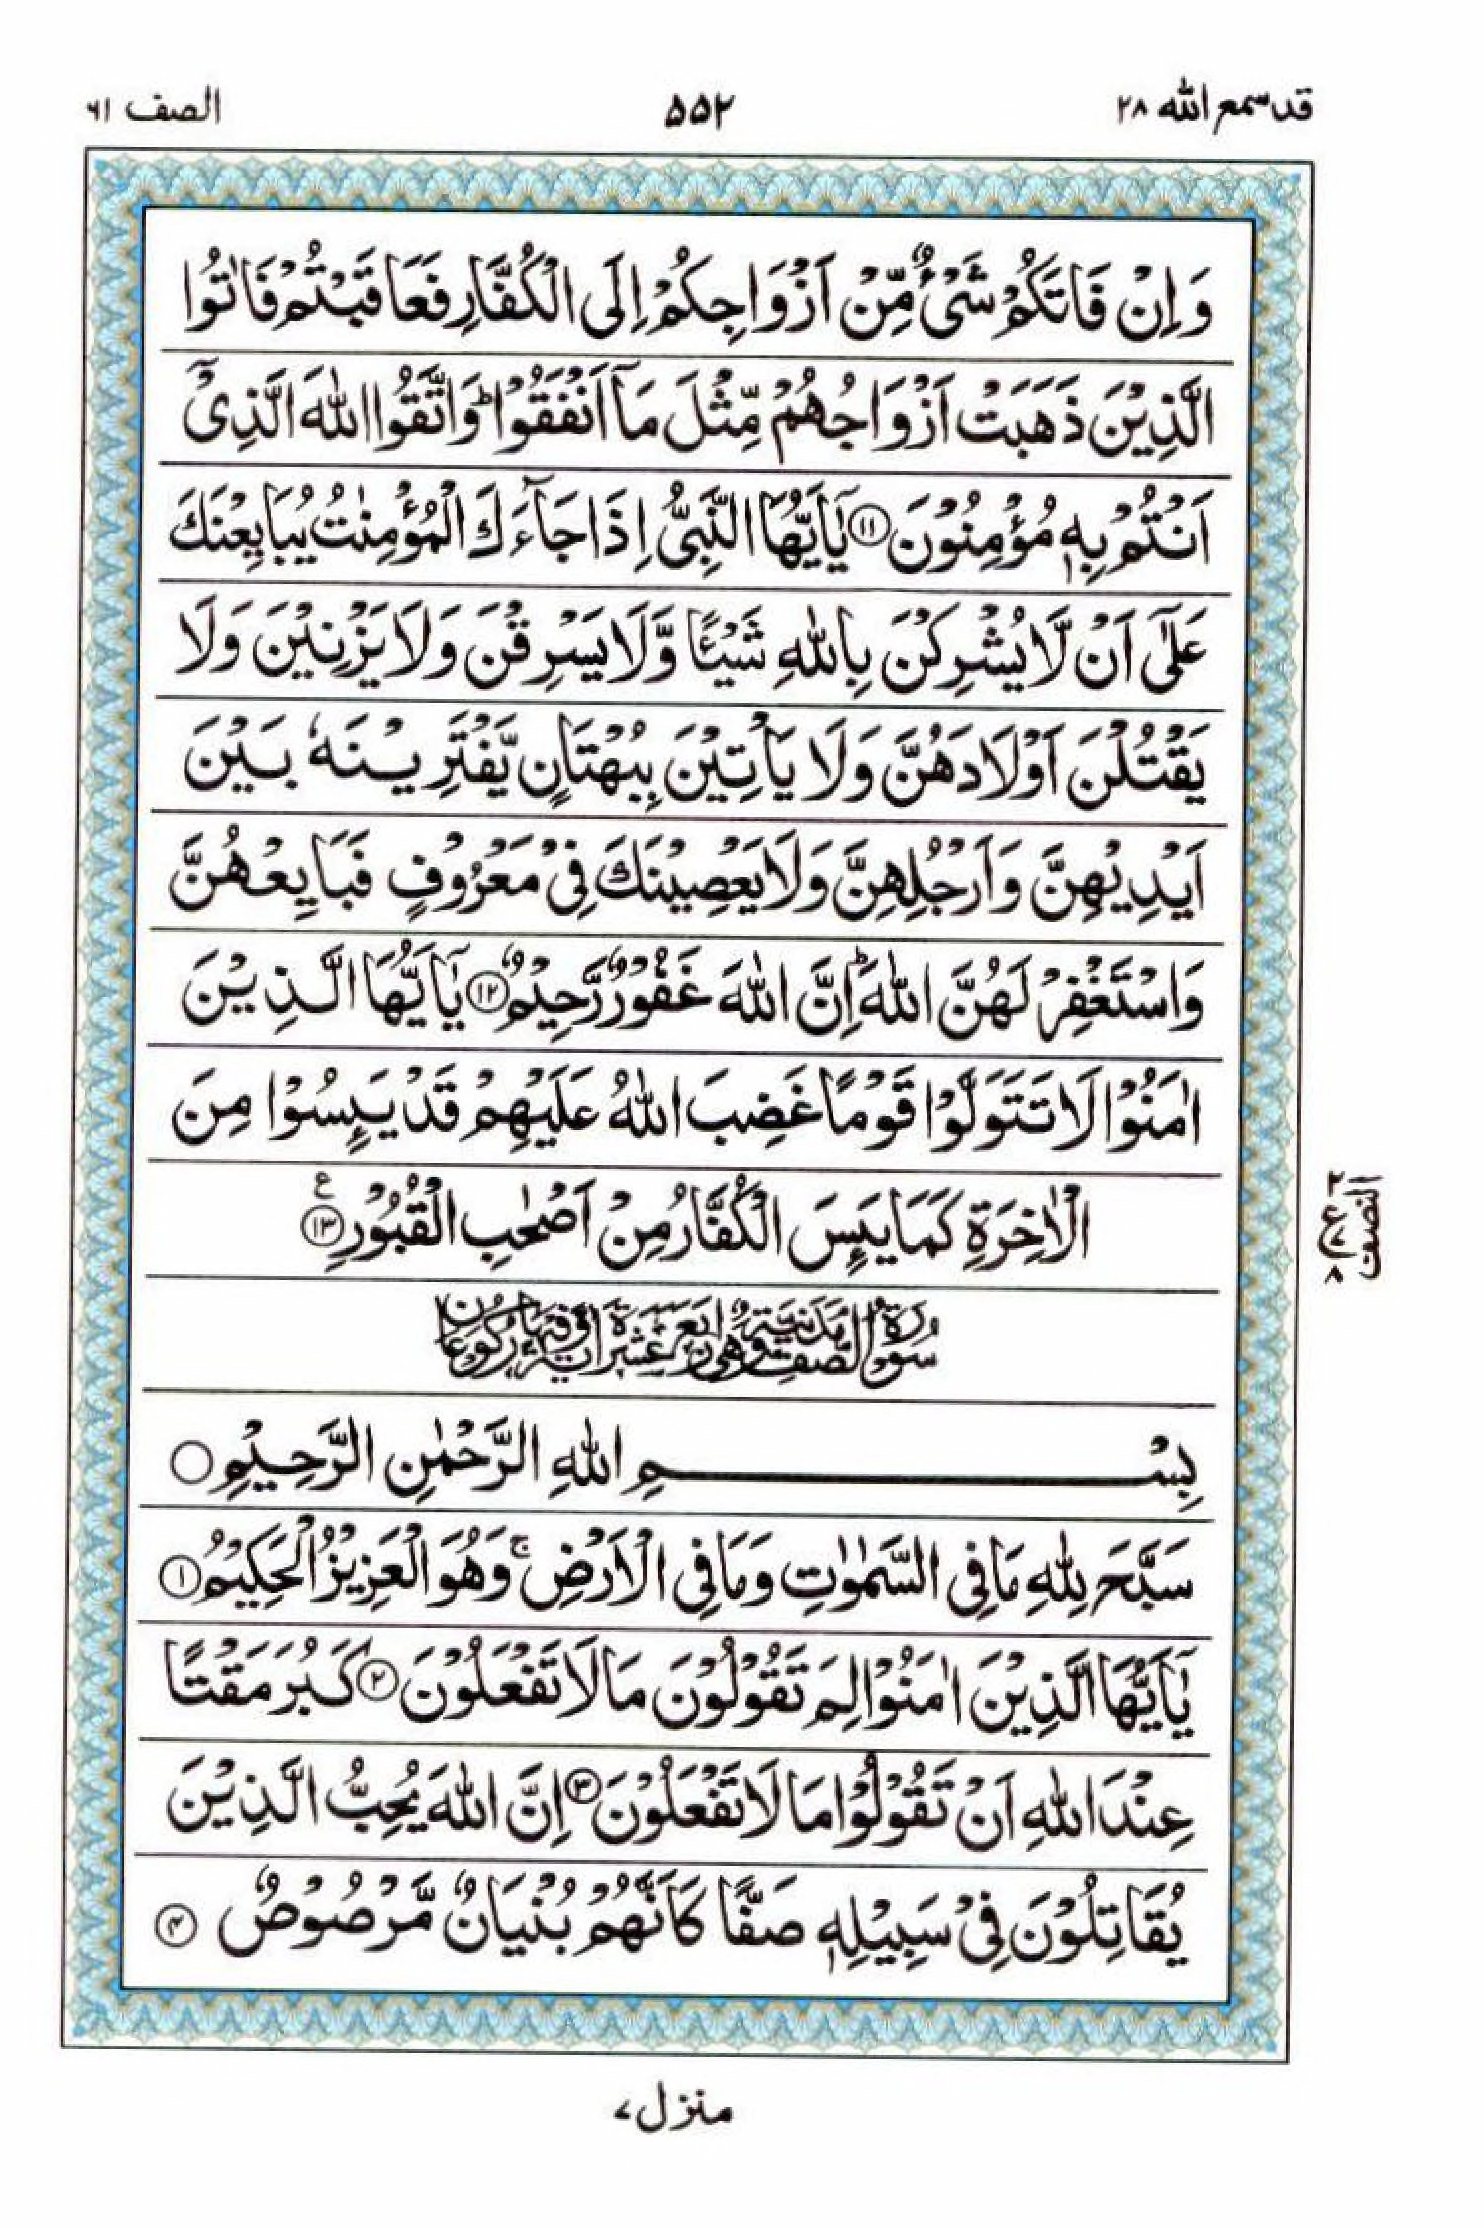 قد سمع الله ٢٨
٥٥٢
الصف ٦١
وَاِنْ فَاتَكُمْ شَىْءٌ مِّنْ اَزْوَاجِكُمْ اِلَى الْكُفَّارِ فَعَاقَبْتُمْ فَاٰتُوا
الَّذِيْنَ ذَهَبَتْ اَزْوَاجُهُمْ مِّثْلَ مَاۤ اَنْفَقُوْا ؕ وَاتَّقُوا اللّٰهَ الَّذِىْۤ
اَنْتُمْ بِهٖ مُؤْمِنُوْنَ ۝۱۱ يٰۤاَيُّهَا النَّبِىُّ اِذَا جَآءَكَ الْمُؤْمِنٰتُ يُبَايِعْنَكَ
عَلٰٓى اَنْ لَّا يُشْرِكْنَ بِاللّٰهِ شَيْـًٔا وَّلَا يَسْرِقْنَ وَلَا يَزْنِيْنَ وَلَا
يَقْتُلْنَ اَوْلَادَهُنَّ وَلَا يَاْتِيْنَ بِبُهْتَانٍ يَّفْتَرِيْنَهٗ بَيْنَ
اَيْدِيْهِنَّ وَاَرْجُلِهِنَّ وَلَا يَعْصِيْنَكَ فِىْ مَعْرُوْفٍ فَبَايِعْهُنَّ
وَاسْتَغْفِرْ لَهُنَّ اللّٰهَ ؕ اِنَّ اللّٰهَ غَفُوْرٌ رَّحِيْمٌ ۝۱۲ يٰۤاَيُّهَا الَّذِيْنَ
اٰمَنُوْا لَا تَتَوَلَّوْا قَوْمًا غَضِبَ اللّٰهُ عَلَيْهِمْ قَدْ يَئِسُوْا مِنَ
الْاٰخِرَةِ كَمَا يَئِسَ الْكُفَّارُ مِنْ اَصْحٰبِ الْقُبُوْرِ ۝۱۳ ع
النصف
٢ ع ٧ ٨
سُوْرَةُ الصَّفِّ مَدَنِيَّةٌ وَّهِىَ اَرْبَعَ عَشْرَةَ اٰيَةً وَّفِيْهَا رُكُوْعَانِ
بِسْمِ اللّٰهِ الرَّحْمٰنِ الرَّحِيْمِ ۝
سَبَّحَ لِلّٰهِ مَا فِى السَّمٰوٰتِ وَمَا فِى الْاَرْضِ ۚ وَهُوَ الْعَزِيْزُ الْحَكِيْمُ ۝۱
يٰۤاَيُّهَا الَّذِيْنَ اٰمَنُوْا لِمَ تَقُوْلُوْنَ مَا لَا تَفْعَلُوْنَ ۝۲ كَبُرَ مَقْتًا
عِنْدَ اللّٰهِ اَنْ تَقُوْلُوْا مَا لَا تَفْعَلُوْنَ ۝۳ اِنَّ اللّٰهَ يُحِبُّ الَّذِيْنَ
يُقَاتِلُوْنَ فِىْ سَبِيْلِهٖ صَفًّا كَاَنَّهُمْ بُنْيَانٌ مَّرْصُوْصٌ ۝۴
منزل ٧